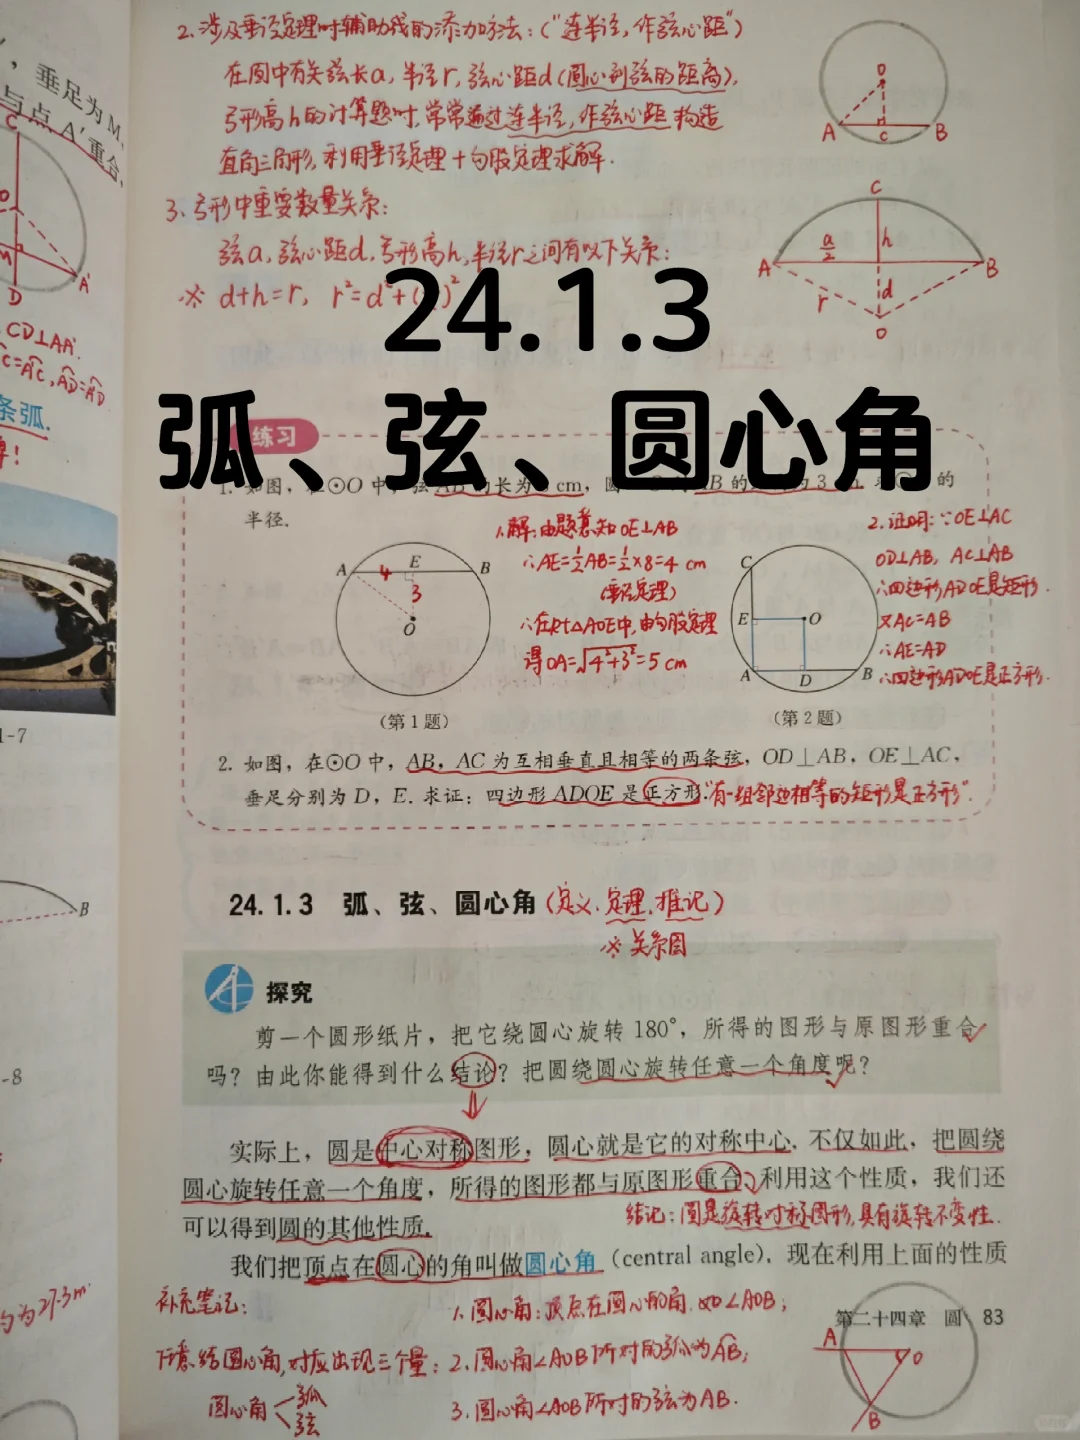 2.涉及垂径定理时辅助线的添加方法:("连半径,作弦心距")
在圆中有关弦长a,半径r,弦心距d(圆心到弦的距离),
弓形高h的计算题时,常常通过连半径,作弦心距构造
直角三角形,利用垂径定理+勾股定理求解.
O
A
C
B
3.弓形中重要数量关系:
弦a,弦心距d,弓形高h,半径r之间有以下关系:
※ d+h=r, r²=d²+( )²
C
a/2
h
A
B
r
d
O
,垂足为M,
与点A′重合,
C
O
M
A′
D
CD⊥AA′.
条弧.
1-7
B
-8
约为27.3m
24.1.3
弧、弦、圆心角
练习
1. 如图,在⊙O中,弦AB的长为 cm,圆 AB的 为3 的
半径.
A
E
B
4
3
O
(第1题)
1.解:由题意知OE⊥AB
∴AE=½AB=½×8=4 cm
(垂径定理)
∴在Rt△AOE中,由勾股定理
得OA=√4²+3²=5 cm
C
E
O
A
D
B
(第2题)
2.证明:∵OE⊥AC
OD⊥AB, AC⊥AB
∴四边形ADOE是矩形.
又AC=AB
∴AE=AD
∴四边形ADOE是正方形.
2. 如图,在⊙O中,AB,AC为互相垂直且相等的两条弦,OD⊥AB,OE⊥AC,
垂足分别为D,E.求证:四边形ADOE是正方形."有一组邻边相等的矩形是正方形".
24.1.3 弧、弦、圆心角(定义.定理.推论)
※关系图
探究
剪一个圆形纸片,把它绕圆心旋转180°,所得的图形与原图形重合
吗?由此你能得到什么结论?把圆绕圆心旋转任意一个角度呢?
实际上,圆是中心对称图形,圆心就是它的对称中心.不仅如此,把圆绕
圆心旋转任意一个角度,所得的图形都与原图形重合.利用这个性质,我们还
可以得到圆的其他性质.
结论:圆是旋转对称图形,具有旋转不变性.
我们把顶点在圆心的角叫做圆心角(central angle).现在利用上面的性质
补充笔记:
1.圆心角:顶点在圆心的角.如∠AOB;
第二十四章 圆 83
对应出现三个量:2.圆心角∠AOB所对的弧为AB;
圆心角
弧
弦
3.圆心角∠AOB所对的弦为AB.
A
O
B